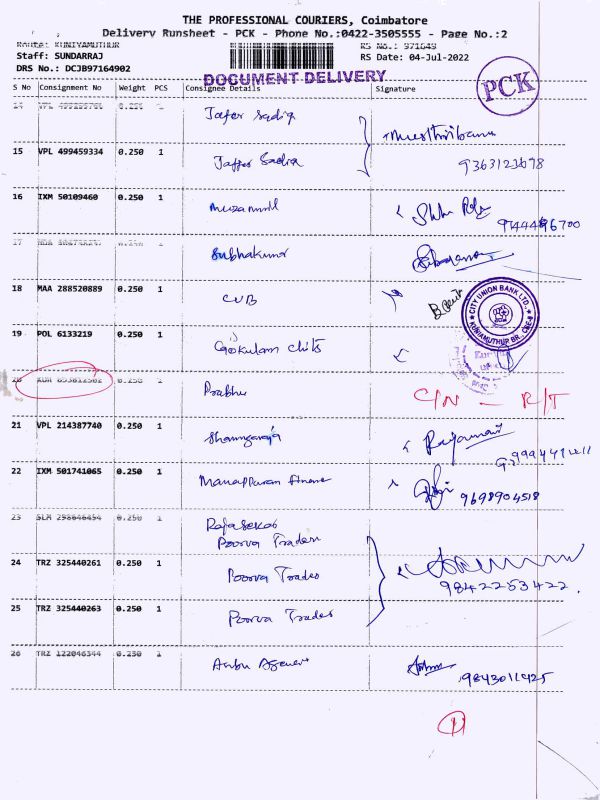 THE PROFESSIONAL COURIERS, Coimbatore
Delivery Runsheet - PCK - Phone No.:0422-3505555 - Page No.:2
Route: KUNIYAMUTHUR RS No.: 971649
Staff: SUNDARRAJ RS Date: 04-Jul-2022
DRS No.: DCJB97164902
DOCUMENT DELIVERY
PCK
S No Consignment No Weight PCS Consignee Details Signature
14 VPL 0.250 1 Jafer Sadiq
15 VPL 499459334 0.250 1 Jaffer Sadiq
16 IXM 50109460 0.250 1 Muzammil
17 0.250 1 Subhakumar
18 MAA 288520889 0.250 1 CUB
CITY UNION BANK LTD.,
19 POL 6133219 0.250 1 Gokulam Chits
20 0.250 Prabhu C/N - R/T
21 VPL 214387740 0.250 1
22 IXM 501741065 0.250 1 Manappuram finance 9698904518
23 SLM 298646454 0.250 1 Rajasekar
Poorva Traders
24 TRZ 325440261 0.250 1 Poorva Trades 9842253422.
25 TRZ 325440263 0.250 1 Poorva Trades
26 TRZ 122046344 0.250 1 Anbu 9843011425
11